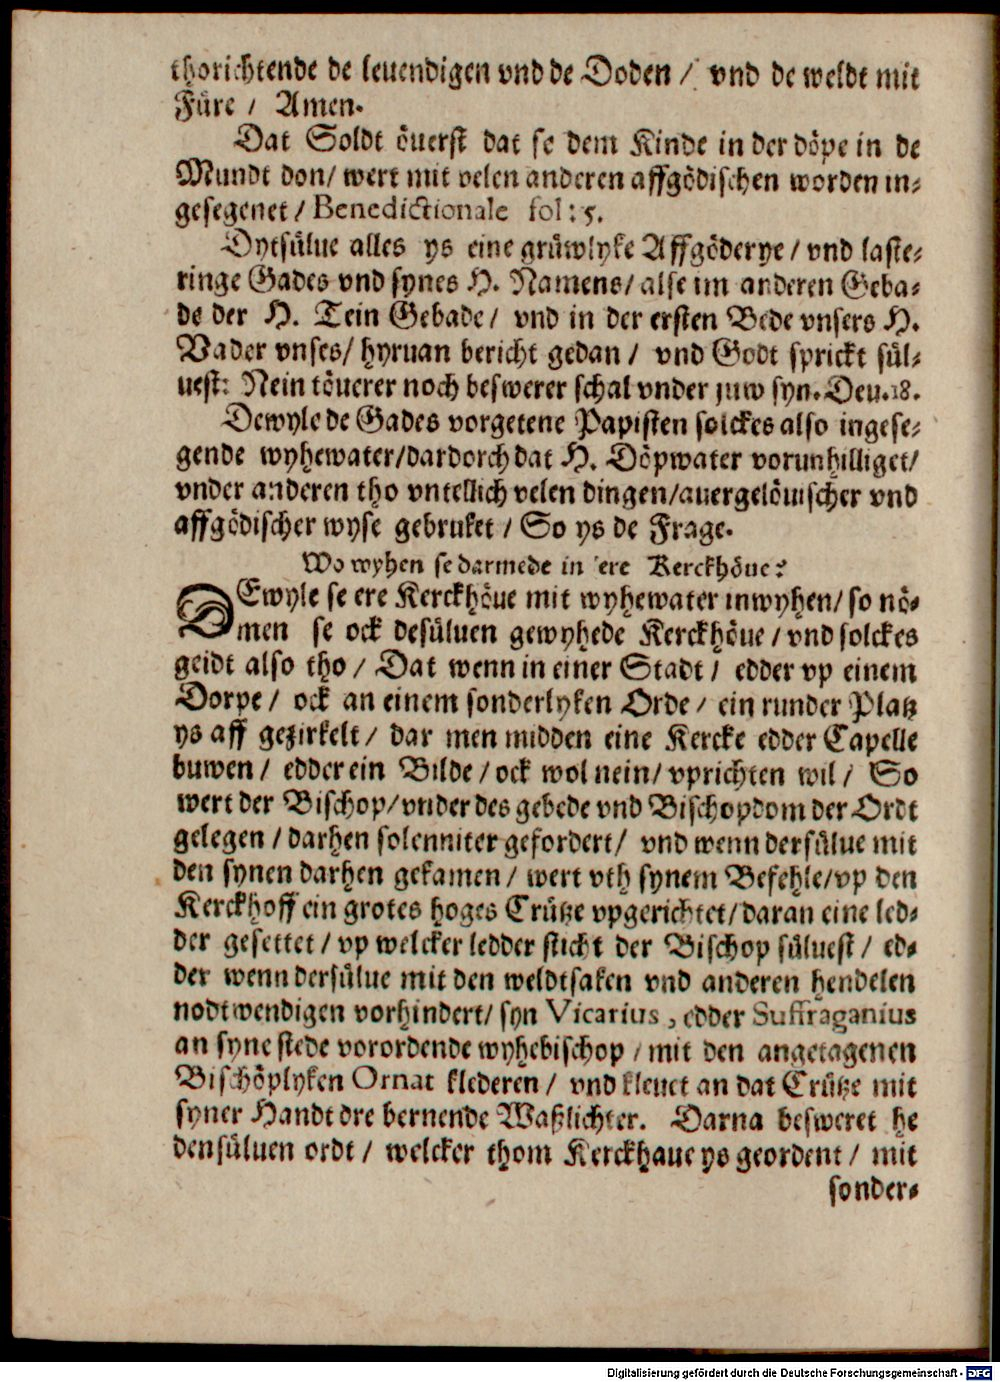 thorichtende de leuendigen vnd de Doden / vnd de weldt mit
Füre / Amen.
Dat Soldt öuerst dat se dem Kinde in der döpe in de
Mundt don/ wert mit velen anderen affgödischen worden in⸗
gesegenet / Benedictionale fol: 5.
Dytsülue alles ys eine grüwlyke Affgöderye / vnd laste⸗
ringe Gades vnd synes H. Namens/ alse im anderen Geba⸗
de der H. Tein Gebade / vnd in der ersten Bede vnsers H.
Vader vnses/ hyruan bericht gedan / vnd Godt sprickt sül⸗
uest: Nein töuerer noch beswerer schal vnder juw syn. Deu. 18.
Dewyle de Gades vorgetene Papisten solckes also ingese⸗
gende wyhewater/dardorch dat H. Döpwater vorunhilliget/
vnder anderen tho vntellich velen dingen/auergelöuischer vnd
affgödischer wyse gebruket / So ys de Frage.
Wo wyhen se darmede in ere Kerckhöue?
DEwyle se ere Kerckhöue mit wyhewater inwyhen/ so nö⸗
men se ock desüluen gewyhede Kerckhöue / vnd solckes
geidt also tho / Dat wenn in einer Stadt / edder vp einem
Dorpe / ock an einem sonderlyken Orde / ein runder Platz
ys aff gezirkelt / dar men midden eine Kercke edder Capelle
buwen / edder ein Bilde / ock wol nein/ vprichten wil / So
wert der Bischop/vnder des gebede vnd Bischopdom der Ordt
gelegen / darhen solenniter gefordert / vnd wenn dersülue mit
den synen darhen gekamen / wert vth synem Befehle/vp den
Kerckhoff ein grotes hoges Crütze vpgerichtet/daran eine led⸗
der gesettet / vp welcker ledder sticht der Bischop süluest / ed⸗
der wenn dersülue mit den weldtsaken vnd anderen hendelen
nodtwendigen vorhindert/ syn Vicarius, edder Suffraganius
an syne stede vorordende wyhebischop / mit den angetagenen
Bischöplyken Ornat klederen / vnd kleuet an dat Crütze mit
syner Handt dre bernende Waßlichter. Darna besweret he
densüluen ordt / welcker thom Kerckhaue ys geordent / mit
sonder⸗
Digitalisierung gefördert durch die Deutsche Forschungsgemeinschaft - DFG